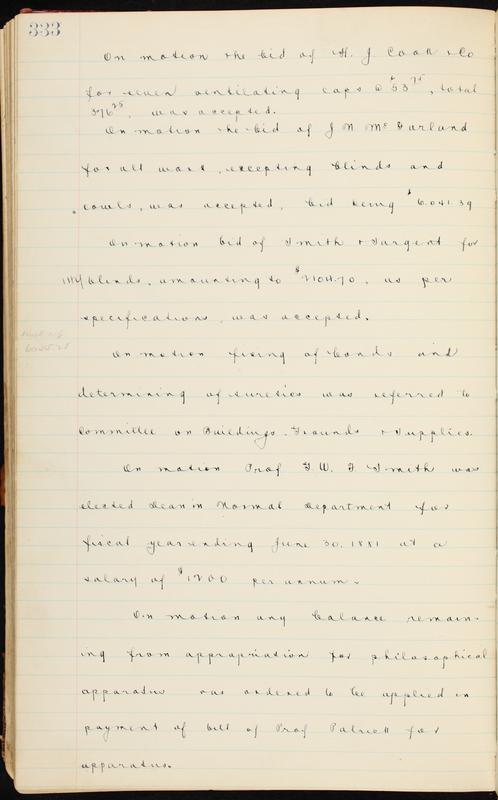 333
On motion the bid of H. J. Cook & Co
for seven ventilating caps @ $53 75, total
376 25, was accepted.
On motion the bid of J N McFarland
for all work, excepting blinds and
cowls, was accepted, bid being $6.041.39
On motion bid of Smith & Sargent for
114 blinds, amounting to $1104.70, as per
specifications, was accepted.
On motion fixing of bonds and
determining of sureties was referred to
Committee on Buildings, Grounds & Supplies.
On motion Prof F. W. Smith was
elected Dean in Normal Department for
fiscal year ending June 30, 1881 at a
salary of $1200 per annum.
On motion any balance remain-
ing from appropriation for philosophical
apparatus was ordered to be applied in
payment of bill of Prof Patrick for
apparatus.